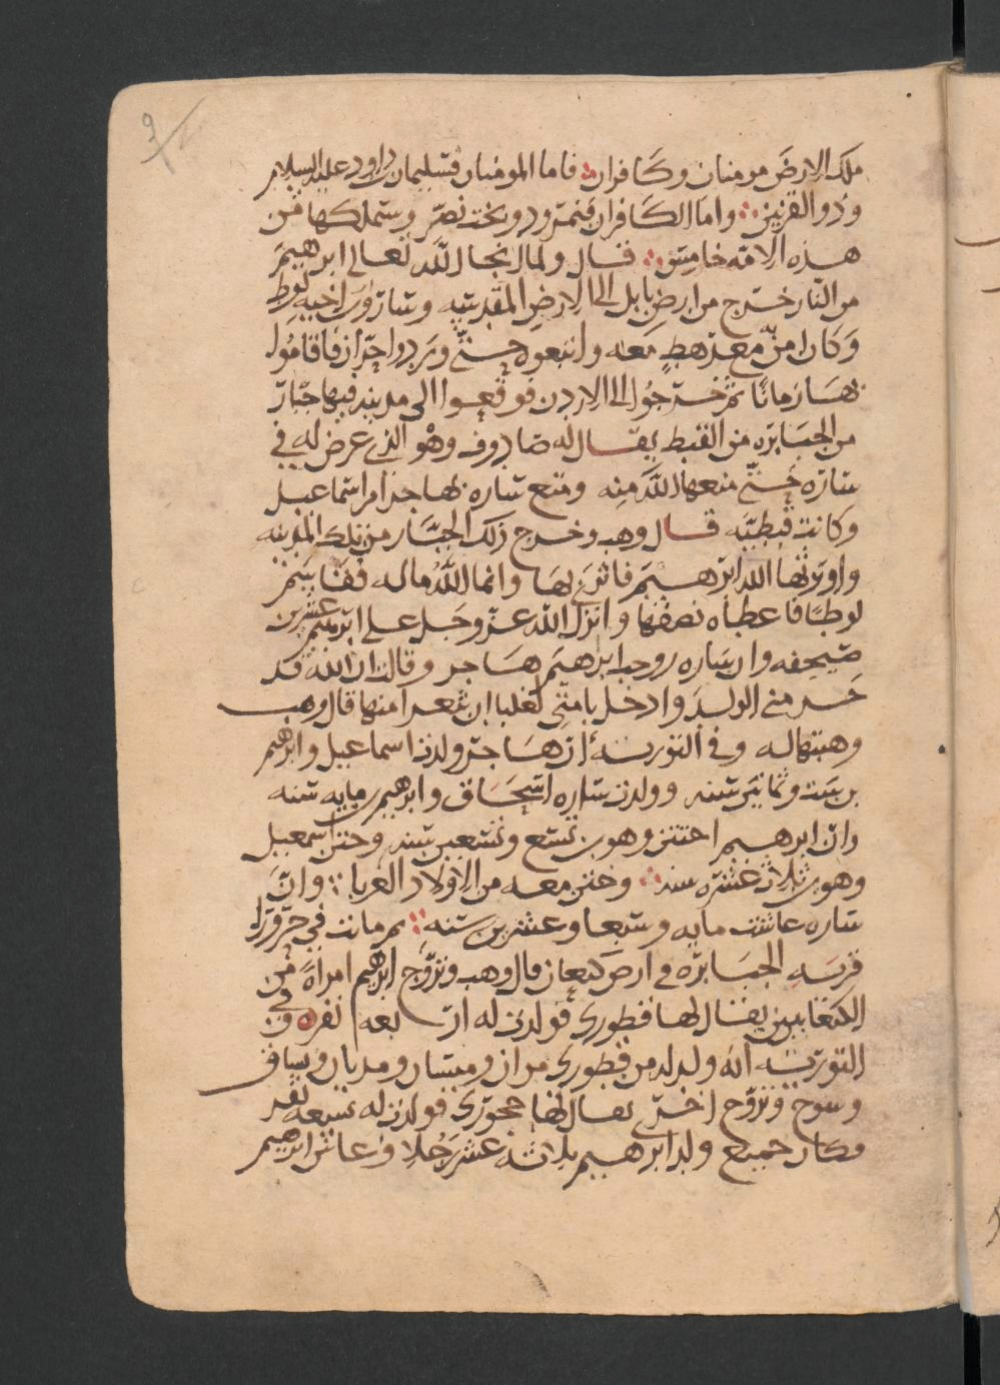 9
ملك الارض مومنان وكافران فاما المومنان فسليمان بن داود عليه السلام
وذو القرنين واما الكافران فنمرود وبخت نصر وسيملكها من
هذه الامة خامس قال ولما انجا الله تعالى ابرهيم
من النار خرج من ارض بابل الى الارض المقدسة وسارة وبن اخيه لوط
وكان امن معه رهط معه واتبعوه حتى وردوا حران فاقاموا
بها زمانا ثم خرجوا الى الاردن فوقعوا الى مدينة فيها جبار
من الجبابرة من القبط يقال له صادوف وهو الذي عرض له في
سارة حتى منعها الله منه ومتع سارة بهاجر ام اسماعيل
وكانت قبطية قال وهب وخرج ذلك الجبار من تلك المدينة
واورثها الله ابرهيم فاثرى بها وانما الله ماله فقاسم
لوطا فاعطاه نصفها وانزل الله عز وجل على ابرهيم عشرين
صحيفه وان ساره زوجة ابرهيم هاجر وقالت ان الله قد
حرمني الولد وادخل بامتي لعلنا ان نتعزا منها قال وهب
وهبتها له وفي التورية ان هاجر ولدت اسماعيل وابرهيم
بن ست وثمانين سنه وولدت ساره اسحاق وابرهيم بن مايه سنه
وان ابرهيم اختتن وهو بن تسع وتسعين سنه وختن اسمعيل
وهو بن ثلاث عشره سنه وختن معه من الاولاد الغربا وان
ساره عاشت مايه وسبعا وعشرين سنه ثم ماتت في
قرية الجبابره في ارض كنعان قال وهب وتزوج ابرهيم امراة من
الكنعانيين يقال لها قطورى فولدت له اربعة نفر وفي
التورية انه ولد له من قطورى مران ومدان ومديان
وسوح وتزوج اخرى يقال لها حجورى فولدت له سبعه نفر
فكان جميع ولد ابرهيم ثلاثة عشر رجلا وعاش ابرهيم